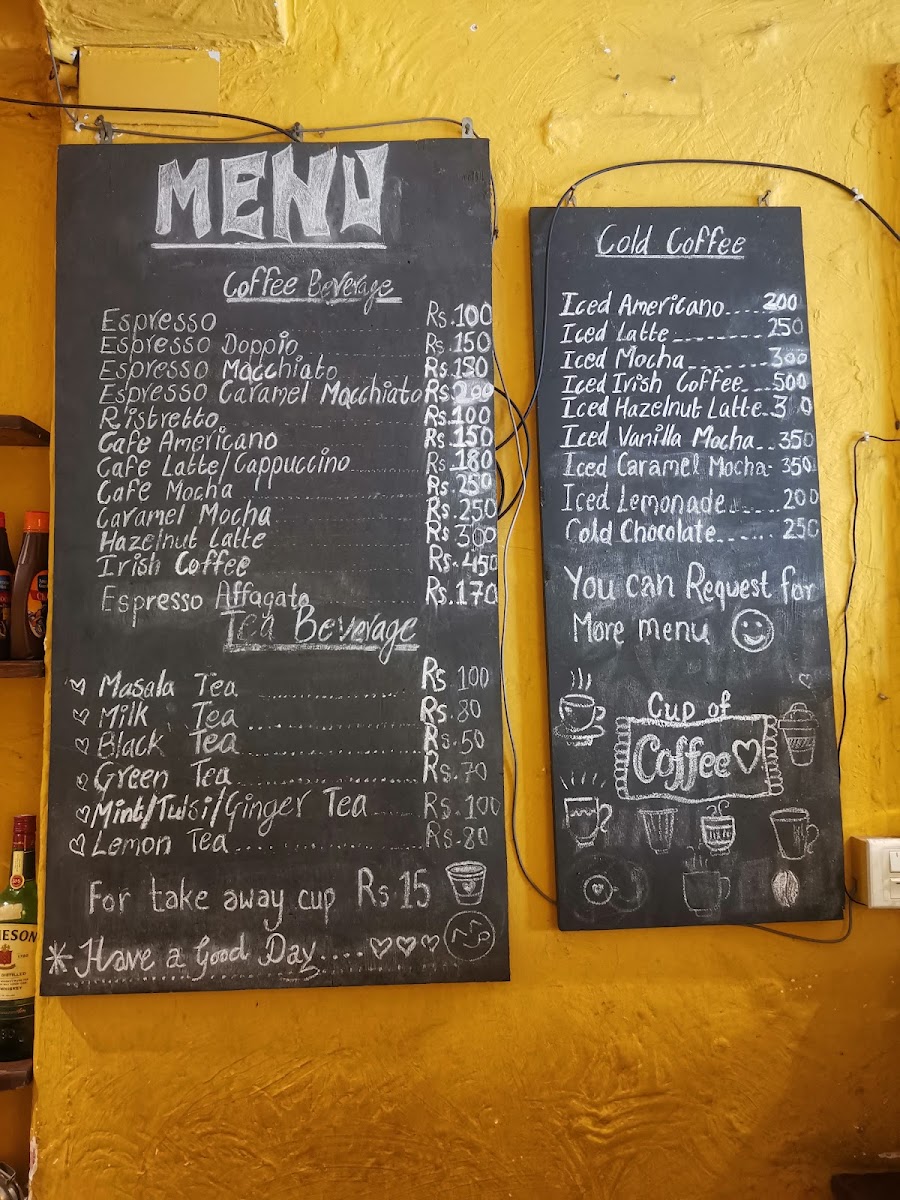 MENU
Coffee Beverage
Espresso Rs.100
Espresso Doppio Rs.150
Espresso Macchiato Rs.150
Espresso Caramel Macchiato Rs.200
R'istretto Rs.100
Cafe Americano Rs.150
Cafe Latte/Cappuccino Rs.180
Cafe Mocha Rs.250
Caramel Mocha Rs.250
Hazelnut Latte Rs 300
Irish Coffee Rs.450
Espresso Affagato Rs.170
Tea Beverage
Masala Tea Rs.100
Milk Tea Rs.80
Black Tea Rs.50
Green Tea Rs.70
Mint/Tulsi/Ginger Tea Rs.100
Lemon Tea Rs.80
For take away cup Rs.15
* Have a Good Day....
Cold Coffee
Iced Americano.....200
Iced Latte 250
Iced Mocha 300
Iced Irish Coffee...500
Iced Hazelnut Latte
Iced Vanilla Mocha...350
Iced Caramel Mocha-350
Iced Lemonade 200
Cold Chocolate 250
You can Request for
More menu
Cup of
Coffee